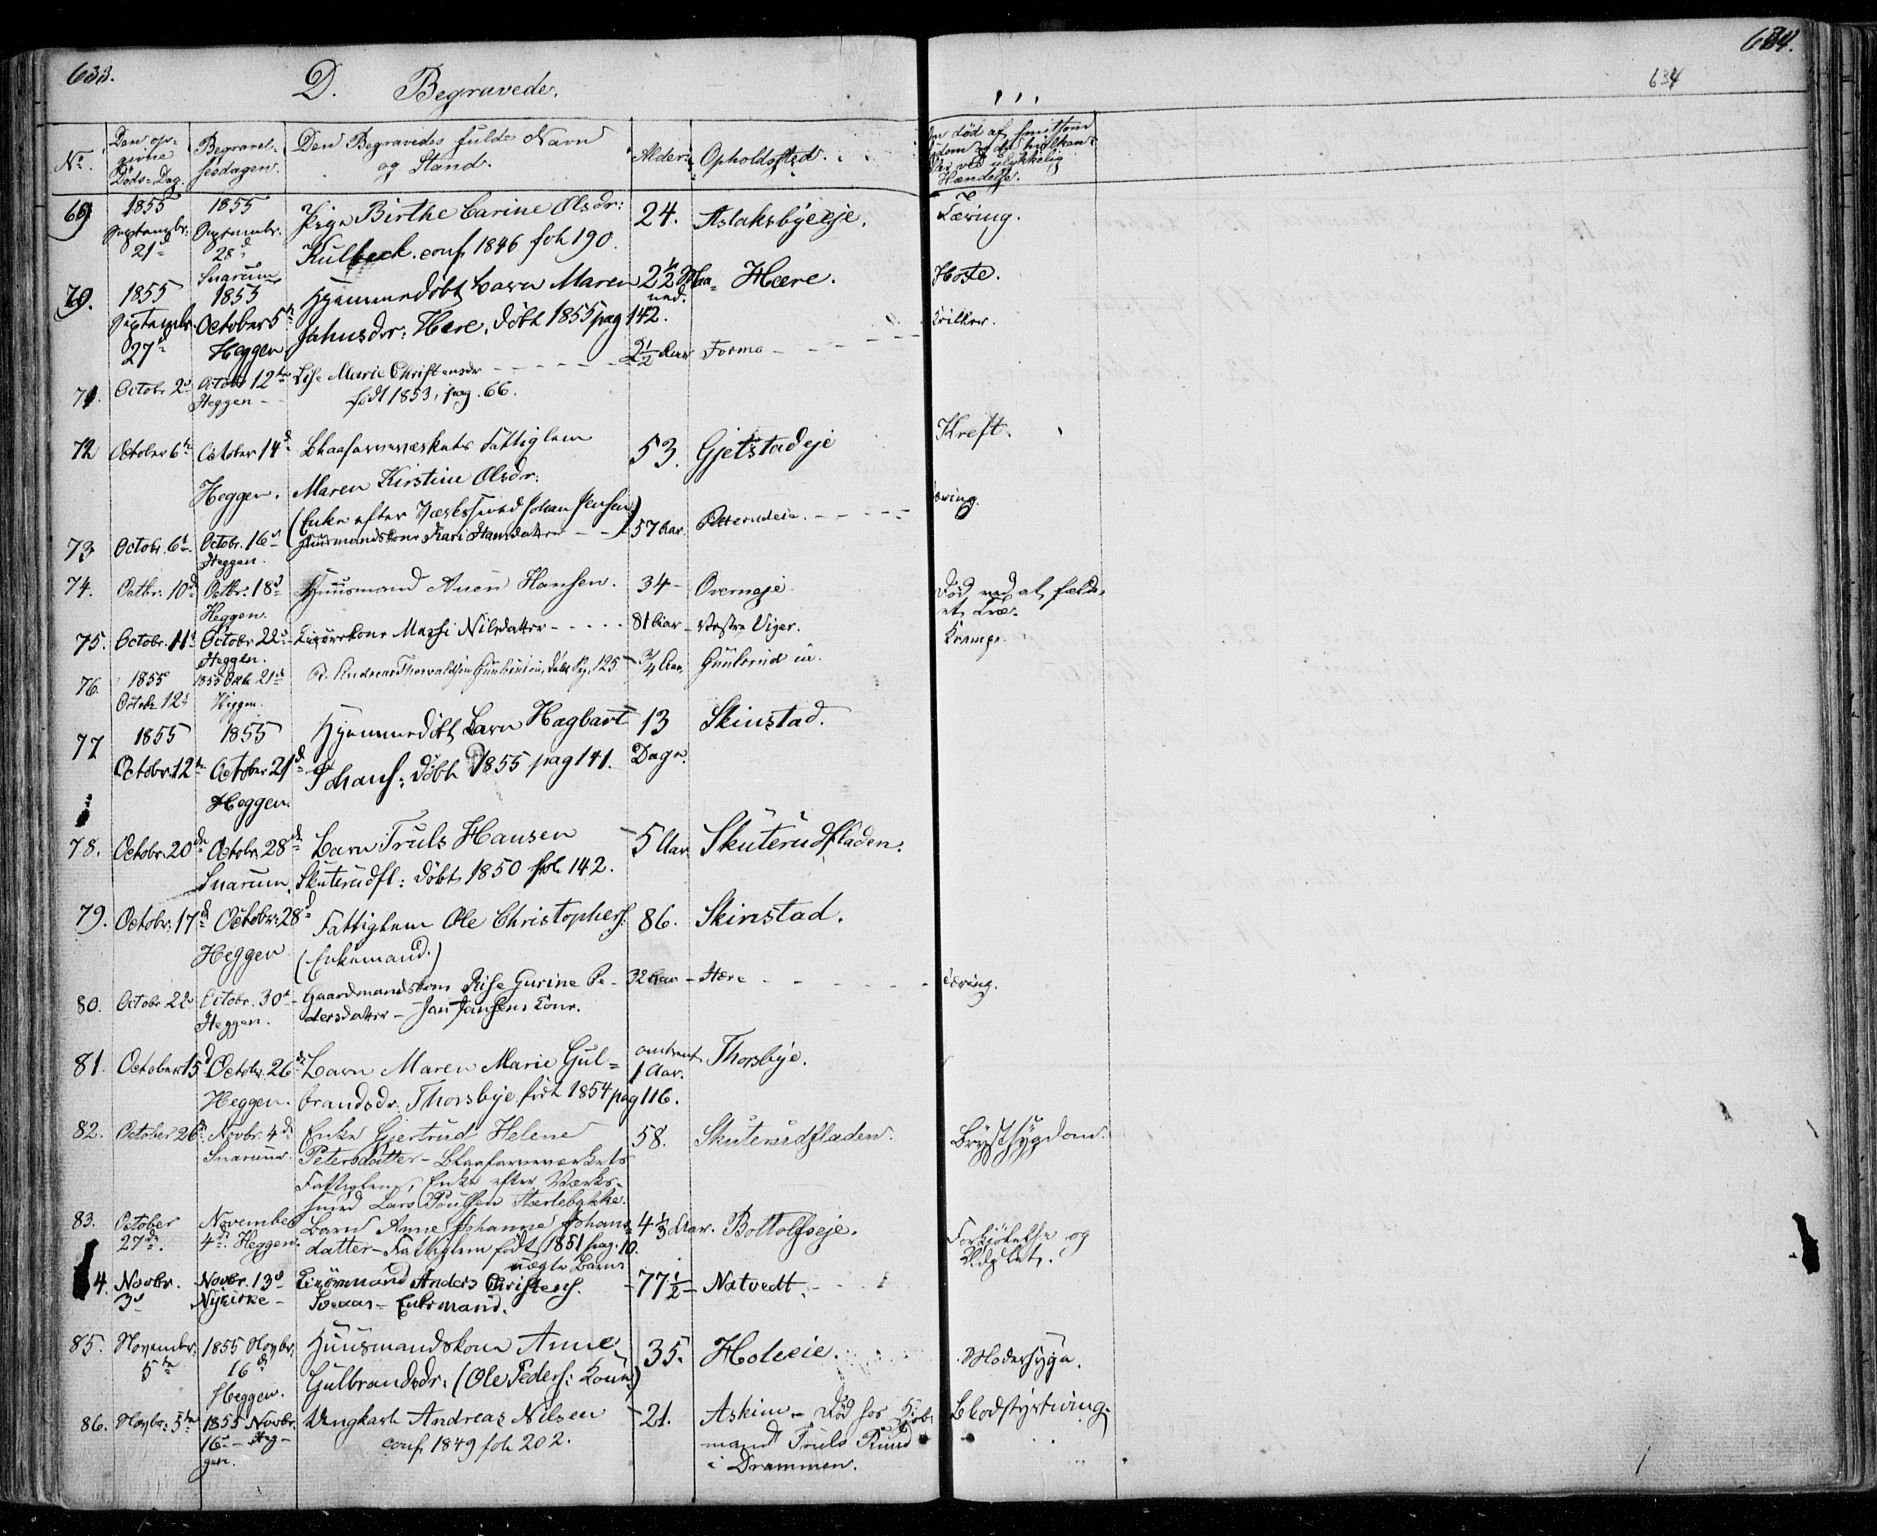 633.
D. Begravede.
634.
634
No.
Den op-
givne
Døds-Dag.
Begravel-
sesdagen.
Den Begravedes fulde Navn
og Stand.
Alder.
Opholdssted.
Om død af smitsom
Sygdom
ved ulykkelig
Hændelse.
69 1855 Septembr. 21d 1855 Septembr. 28d Snarum Pige Birthe Carine Olsdr:
Kulbeck. conf 1846 fol 190. 24. Aslaksbyeeje. Tæring.
70. 1855 Septembr. 27d 1855 October 5te Heggen Hjemmedøbt Barn Maren
Jahnsdr: Hære. døbt 1855 pag 142. 2½ Maaned. Hære. Hoste.
71. Octobr 2d Octobr 12te Heggen Lise Marie Christensdr
født 1853, pag. 66. 2½ Aar Formo
72 October 6te October 14d Heggen. Blaafarveværkets Fattiglem
Maren Kirstine Olsdr:
(Enke efter Værkssmed Johan Jensen) 53. Gjetstadeje Kreft.
73 Octobr. 6te Octobr. 16d Heggen. Huusmandskone Kari Hansdatter 57 Aar. æring.
74. Octbr. 10d Octbr. 18d Heggen. Huusmand Auen Hansen. 34 Overneje. Død ved at fælde
et Træ.
75. Octobr. 11te Octobr. 22d Heggen. Kone Massi Nilsdatter 81 Aar Vestre Viger. Krampe.
76. 1855 Octobr 12te 1855 Octb 21d Heggen. Andreas Thorvaldsen døbt Pag. 125 ¾ Aar
77 1855 Octobr. 12te 1855 October 21d Heggen. Hjemmedøbt Barn Hagbart
Johans: døbt 1855 pag 141. 13 Dage. Skinstad.
78. Octobr. 20de Octobr. 28de Snarum. Barn Truls Hansen
Skuterudfl: døbt 1850 fol 142. 5 Aar. Skuterudfladen.
79. Octobr: 17d Octobr: 28d Heggen Fattiglem Ole Christophers:
(Enkemand.) 86. Skinstad.
80. Octobr 22d Octobr. 30te Heggen. Gaardmandskone Rise Gurine Pe-
dersdatter - Jan Jansens Kone. 32 Aar Hære Tæring.
81. October 15d Octobr. 26de Heggen. Barn Maren Marie Gul-
brandsdr. Thorsbye født 1854 pag 116. omtrent 1 Aar. Thorsbye.
82. October 26de Novbr. 4de Snarum. Enke Gjertrud Helene
Petersdatter - Blaafarveværkets
Fattiglem, Enke efter Værks-
smed Lars Poulsen Hærlebakke. 58. Skuterudfladen. Brystsygdom.
83. October 27de. November 4de Heggen. Barn Anne Johanne Johans-
datter - Fattiglem født 1851 pag. 10.
uægte Barn 4⅓ Aar. Bottolfseje. Forkjølelse og
Udslet.
84. Novbr. 3d Novbr. 13d Nykirke - Anders Christens.
Sveaas - Enkemand. 77½ Natvedt.
85. Novembr: 5te 1855 Novbr. 16de Heggen. Huusmandskone Anne
Gulbrandsdr: (Ole Peders: Kone) 35. Holeeie. Modersyge.
86. Novbr: 5te 1855 Novbr. 16d - Heg-
gen. Ungkarl Andreas Nilsen
conf 1849 fol 202. 21. Askim - Død hos
mand Truls Ruud
i Drammen. Blodstyrtning.